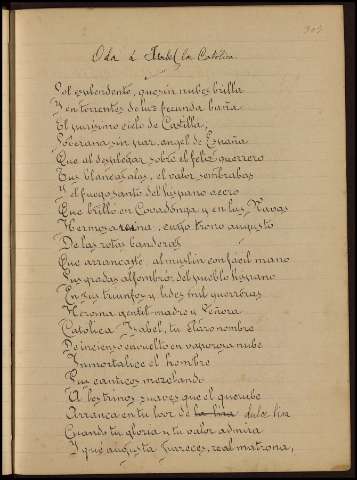 Oda á Isabel la Católica.
Sol esplendente, que sin nubes brilla
Y en torrentes de luz fecunda baña
El purísimo cielo de Castilla,
Soberana sin par, angel de España
Que al desplegar sobre el feliz guerrero
Tus blancas alas, el valor sembrabas
Y el fuego santo del hispano acero
Que brilló en Covadonga y en las Navas
Hermosa reina, cuyo trono augusto
De las rotas banderas
Que arrancaste al muslin con fácil mano
Sus gradas alfombró del pueblo hispano
En sus triunfos y lides mil guerreras
Heroina gentil madre y Señora
Católica Isabel, tu claro nombre
De incienso envuelto en vaporosa nube
Inmortalice el hombre
Sus canticos mezclando
A los trinos suaves que el querube
Arranca en tu loor de la lira dulce lira
Cuando tu gloria y tu valor admira
Y que augusta pareces, real matrona,